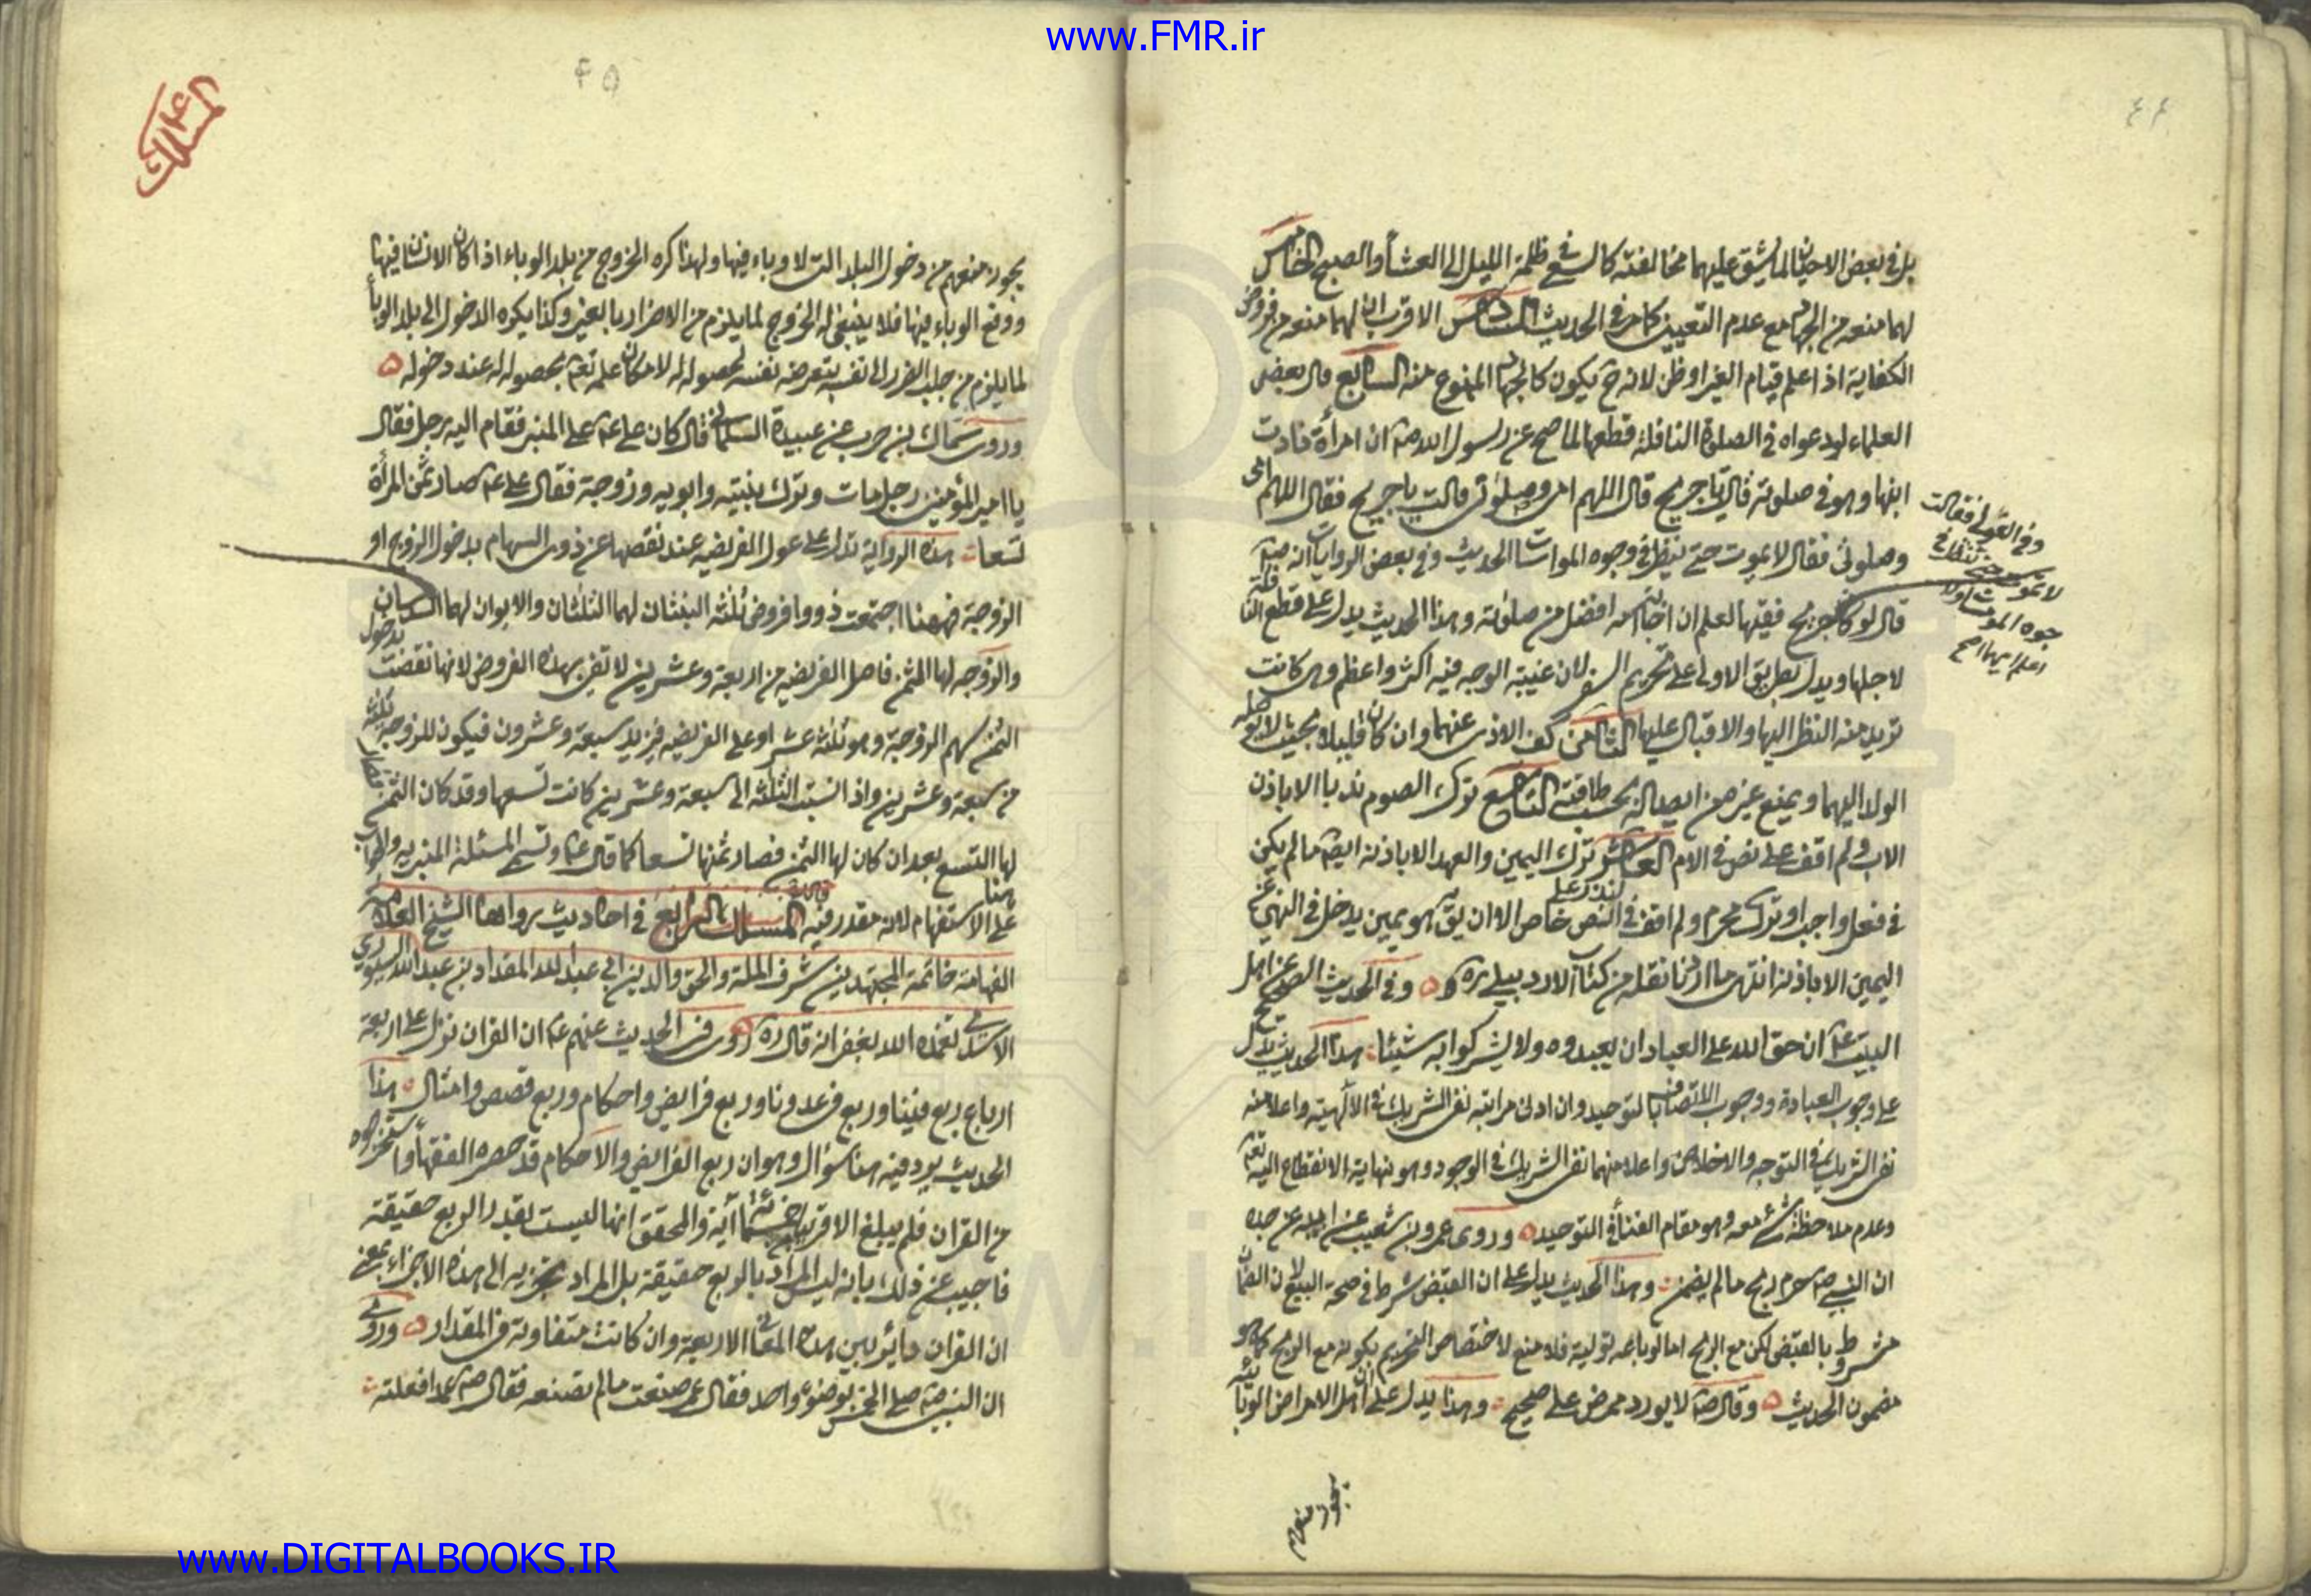 www.FMR.ir
٤٤
بل في بعض الاحيان لما يشق عليهما مخالفته كالسعي في ظلمة الليل الى العشاء والصبح الخامس
لهما منعه من الجهاد مع عدم التعيين كما مر في الحديث السادس الاقرب ان لهما منعه من فروض
الكفاية اذا علم قيام الغير او ظن لانه ح يكون كالجهاد الممنوع منه السابع قال بعض
العلماء لو دعواه في الصلوة النافلة قطعها لما صح عن رسول الله ص ان امرأة نادت
ابنها وهو في صلوته قالت يا جريح قال اللهم امي وصلوتي قالت يا جريح فقال اللهم امي
وصلوتي فقال لا يموت حتى ينظر في وجوه المومسات الحديث وفي بعض الروايات انه ص
قال لو كان جريح فقيها لعلم ان اجابة امه افضل من صلوته وهذا الحديث يدل على قطع النافلة
لاجلها ويدل بطريق الاولى على تحريم السفر لان غيبة الوجه فيه اكثر واعظم وهي كانت
تريد منه النظر اليها والاقبال عليها الثامن كف الاذى عنهما وان كان قليلا بحيث لا يوصله
الولد اليهما ويمنع غيره من ايصاله بحسب طاقته التاسع ترك الصوم ندبا الا باذن
الاب ولم اقف على نص في الام العاشر ترك اليمين والعهد الا باذنه ايضا ما لم يكن
في فعل واجب او ترك محرم ولم اقف في النذر على نص خاص الا ان يق هو يمين يدخل في النهي عن
اليمين الا باذنه انتهى ما اردنا نقله من كتاب الاردبيلي ره وفي الحديث الصحيح عن اهل
البيت ع ان حق الله على العباد ان يعبدوه ولا يشركوا به شيئا هذا الحديث يدل
على وجوب العبادة ووجوب الاتصاف بالتوحيد وان ادنى مراتبه نفي الشريك في الالهية واعلا منه
نفي الشريك في التوجه والاخلاص واعلا منهما نفي الشريك في الوجود وهو نهاية الانقطاع اليه تعالى
وعدم ملاحظة شئ معه وهو مقام الفناء في التوحيد وروى عمرو بن شعيب عن ابيه عن جده
ان النبي ص حرم ربح ما لم يضمن وهذا الحديث يدل على ان القبض شرط في صحة البيع لان الضمان
مشروط بالقبض لكن مع الربح اما لو باعه تولية فلا منع لاختصاص التحريم بكونه مع الربح كما هو
مضمون الحديث وقال ص لا يورد ممرض على صحيح وهذا يدل على ان اهل الامراض الوبائية
يجوز منعهم
وفي العوالي فقالت
لا تموت حتى تنظر في
وجوه المومسات
اعلم ايهما اصح
٤٥
المسلك ٤
يجوز منعهم من دخول البلد التي لا وباء فيها ولهذا كره الخروج من بلد الوباء اذا كان الانسان فيها
ووقع الوباء فيها فلا ينبغي له الخروج لما يلزم من الاضرار بالغير وكذا يكره الدخول الى بلد الوباء
لما يلزم من جلب الضرر الى نفسه بتعرضه نفسه لحصوله له لامكان علمه تعالى بحصوله له عند دخوله
وروى سماك بن حرب عن عبيدة السلماني قال كان علي ع على المنبر فقام اليه رجل فقال
يا امير المؤمنين رجل مات وترك بنتيه وابويه وزوجة فقال علي ع صار ثمن المرأة
تسعا هذه الرواية تدل على عول الفريضة عند نقصها عن ذوي السهام بدخول الزوج او
الزوجة فههنا اجتمعت ذووا فروض ثلثة البنتان لهما الثلثان والابوان لهما السدسان
والزوجة لها الثمن فاصل الفريضة من اربعة وعشرين لا تفي بهذه الفروض لانها نقصت بدخول
الثمن سهم الزوجة وهو ثلثة عشر او على الفريضة فيزيد سبعة وعشرون فيكون للزوجة ثلثة
من سبعة وعشرين واذا انسبت الثلثة الى سبعة وعشرين كانت تسعها وقد كان الثمن فصار
لها التسع بعد ان كان لها الثمن فصار ثمنها تسعا كما قال ع وتسمى المسئلة المنبرية والجواب هنا
على الاستفهام لانه مقدر فيه المسلك الرابع في احاديث رواها الشيخ العلامة
الفهامة خاتمة المجتهدين شرف الملة والحق والدين ابي عبد الله المقداد بن عبد الله السيوري
الاسدي تغمده الله بغفرانه قال ره روى في الحديث عنهم ع ان القران نزل على اربعة
ارباع ربع فينا وربع في عدونا وربع فرايض واحكام وربع قصص وامثال هذا
الحديث يرد فيه هنا سؤال وهو ان ربع الفرايض والاحكام قد حصره الفقهاء واستخرجوه
من القران فلم يبلغ الا قريبا خمسمائة آية والمحقق انها ليست بقدر الربع حقيقة
فاجيب عن ذلك بانه ليس المراد بالربع حقيقة بل المراد تجزيه الى هذه الاجزاء بمعنى
ان القران دائر بين هذه المعاني الاربعة وان كانت متفاوتة في المقدار وروى
ان النبي ص صلى الخمس بوضوء واحد فقال عمر صنعت ما لم تصنعه فقال ص عمدا فعلته
www.DIGITALBOOKS.IR